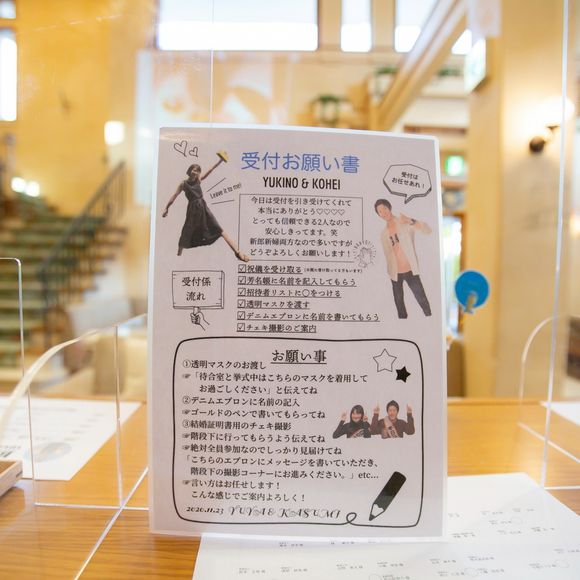 受付お願い書
YUKINO & KOHEI
Leave it to me!
受付は
お任せあれ!
今日は受付を引き受けてくれて
本当にありがとう♡♡♡♡
とっても信頼できる2人なので
安心しきってます。笑
新郎新婦両方なので多いですが
どうぞよろしくお願いします!
受付係
流れ
☑祝儀を受け取る
☑芳名帳に名前を記入してもらう
☑招待者リストに○をつける
☑透明マスクを渡す
☑デニムエプロンに名前を書いてもらう
☑チェキ撮影のご案内
お願い事
①透明マスクのお渡し
☞「待合室と挙式中はこちらのマスクを着用して
お過ごしください」と伝えてね
②デニムエプロンに名前の記入
☞ゴールドのペンで書いてもらってね
③結婚証明書用のチェキ撮影
☞階段下に行ってもらうよう伝えてね
☞絶対全員参加なのでしっかり見届けてね
「こちらのエプロンにメッセージを書いていただき、
階段下の撮影コーナーにお進みください。」etc...
☞言い方はお任せします!
こんな感じでご案内よろしく!
2020.11.23 YUYA & KASUMI